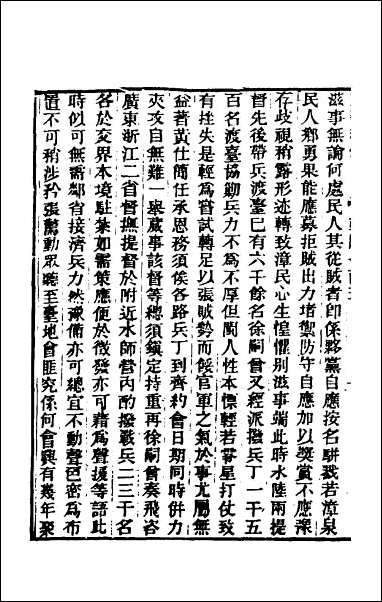 滋事無論何處民人其從賊者卽係夥黨自應按名駢戮若漳泉
民人鄉勇果能應募拒賊出力堵禦防守自應加以獎賞不應豫
存歧視稍露形迹轉致漳民心生惶懼別滋事端此時水陸兩提
督先後帶兵渡臺已有六千餘名徐嗣曾又經派撥兵丁一千五
百名渡臺協勦兵力不爲不厚但閩人性本慓輕若零星打仗致
有挫失是輕爲嘗試轉足以張賊勢而餒官軍之氣於事尤屬無
益著黃仕簡任承恩務須俟各路兵丁到齊約會日期同時併力
夾攻自無難一舉蕆事該督等總須鎭定持重再徐嗣曾奏飛咨
廣東浙江二省督撫提督於附近水師營內酌撥戰兵二三千名
各於交界本境駐紮如需策應便於徵發亦可藉爲聲援等語此
時似可無需鄰省接濟兵力然豫備亦可總宜不動聲色密爲布
置不可稍涉矜張驚動眾聽至臺地會匪究係何會興有幾年聚